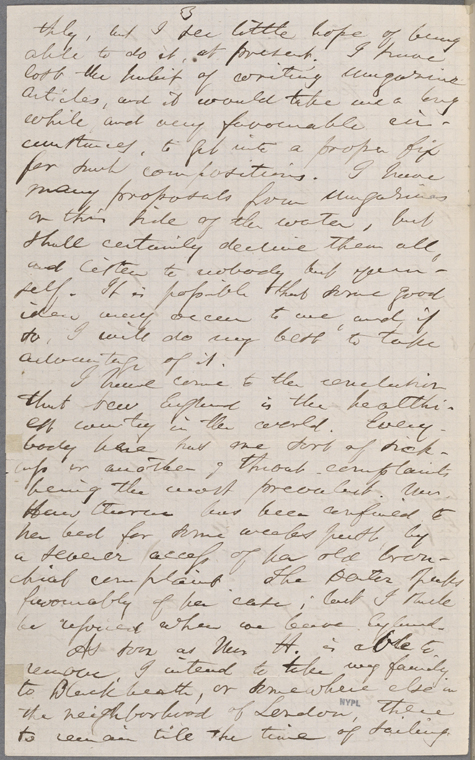 3
thly, but I see little hope of being
able to do it, at present. I have
lost the habit of writing magazine
articles, and it would take me a long
while and very favourable cir-
cumstances, to get into a proper fix
for such compositions. I have
many proposals from magazines
on this side of the water, but
shall certainly decline them all,
and listen to nobody but your-
self. It is possible that some good
idea may occur to me, and if
so, I will do my best to take
advantage of it.
I have come to the conclusion
that New England is the healthi-
est country in the world. Every-
body here has one sort of sick-
ness or another, throat-complaints
being the most prevalent. Mrs.
Hawthorne has been confined to
her bed for some weeks past by
a severe access of her old bron-
chial complaint. The Doctor speaks
favourably of her case; but I shall
be rejoiced when we leave England.
As soon as Mrs H. is able to
remove, I intend to take my family
to Blackheath, or somewhere else in
the neighborhood of London, there
to remain till the time of sailing
NYPL